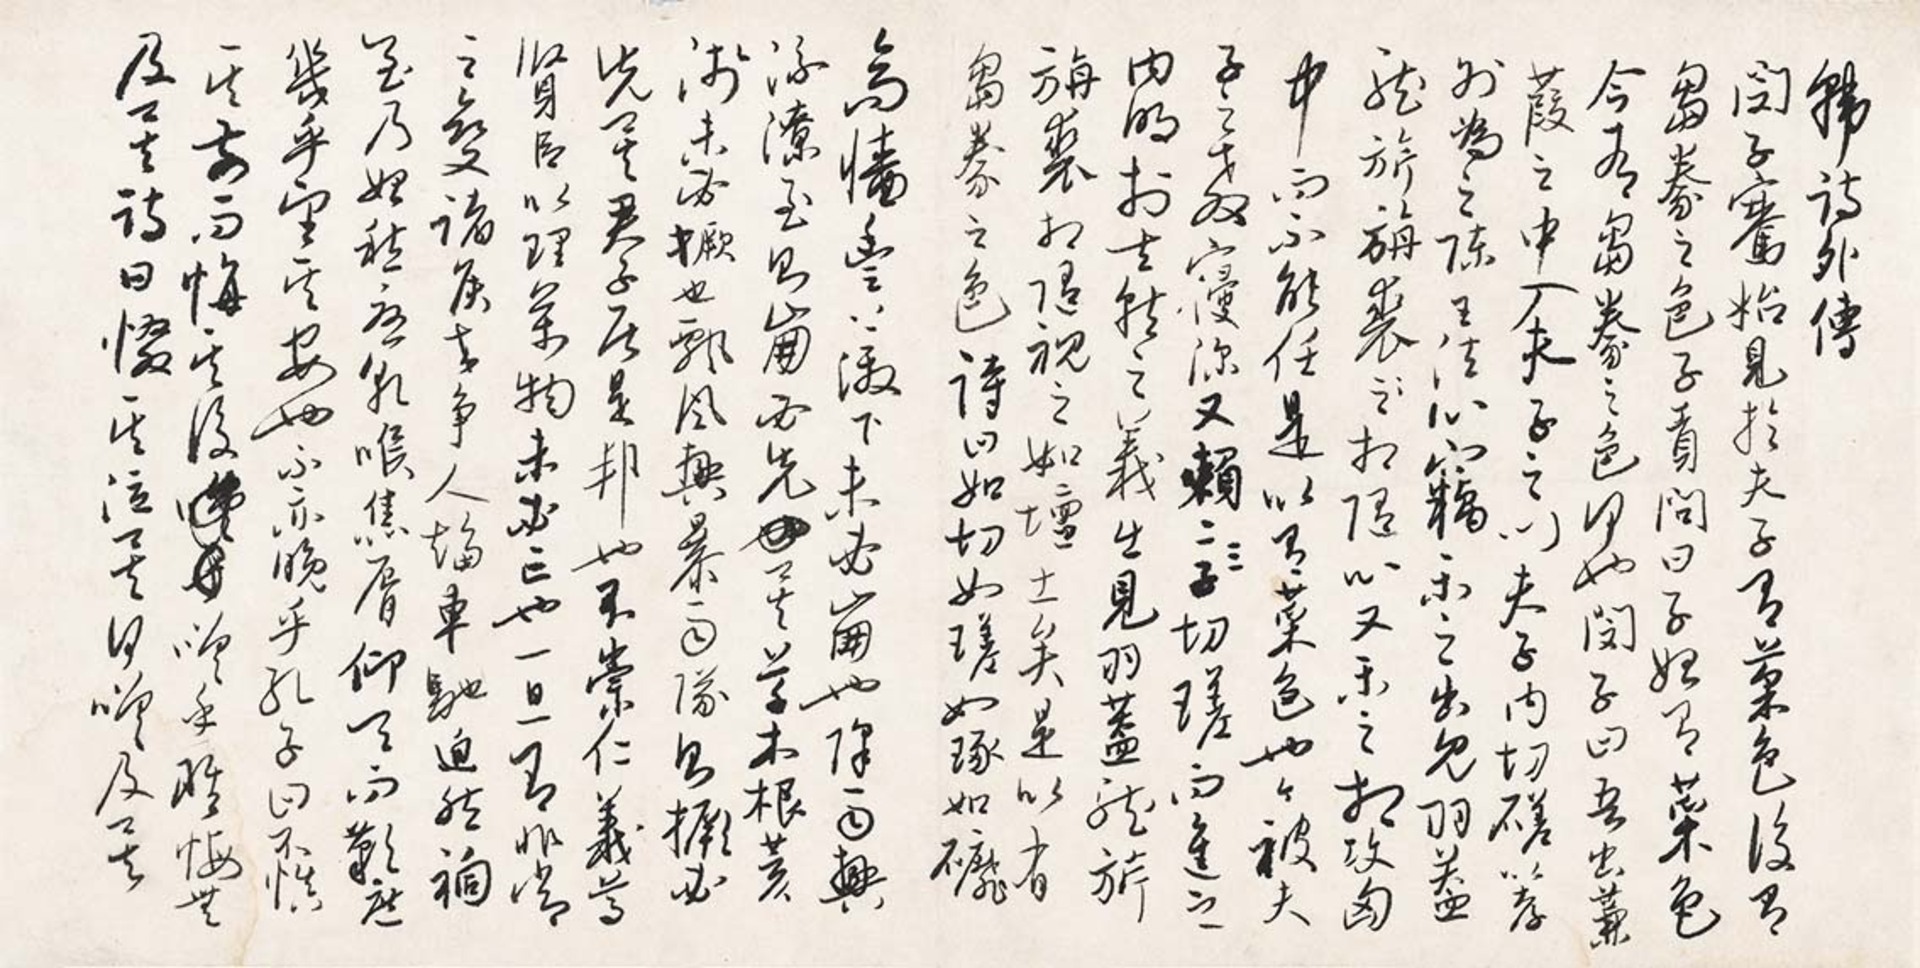 韩詩外傳
閔子騫始見於夫子有菜色後有
芻豢之色子貢問曰子始有菜色
今有芻豢之色何也閔子曰吾出蒹
葭之中入夫子之門夫子内切磋以孝
外為之陳王法心竊樂之出見羽蓋
龍旂旃裘之相隨心又樂之相攻匈
中而不能任是以有菜色也今被夫
子之教寖深又賴二三子切瑳而進之
内明於去就之義出見羽蓋龍旂
旃裘相隨視之如壇土矣是以有
芻豢之色詩曰如切如瑳如琢如礲
高墻豐上激下未必崩也降雨興
流潦至則崩必先矣草木根荄
淺未必撅也飄風興暴雨隊則撅必
先矣君子居是邦也不崇仁義尊
賢臣以理萬物未必亡也一旦有非常
之變諸侯交争人趨車馳迫然禍
至乃始愁憂乾喉焦脣仰天而歎庶
幾乎望其安也不亦晚乎孔子曰不慎
其前而悔其後嗟乎雖悔無
及矣詩曰惙其泣矣何嗟及矣